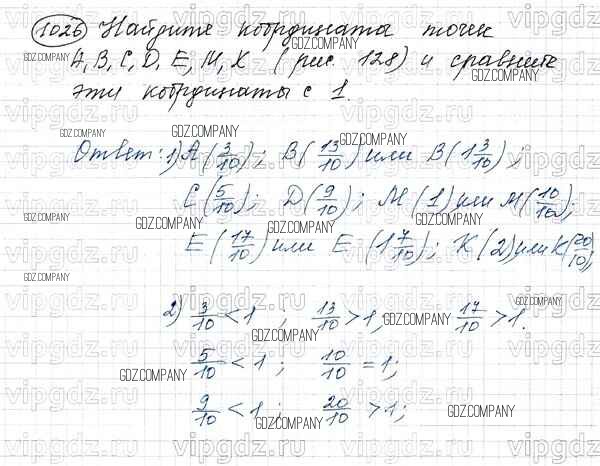 1026 Найдите координаты точек
A, B, C, D, E, M, K (рис. 128) и сравните
эти координаты с 1.
Ответ: 1) A(3/10); B(13/10) или B(1 3/10);
C(5/10); D(9/10); M(1) или M(10/10);
E(17/10) или E(1 7/10); K(2) или K(20/10);
2) 3/10 < 1; 13/10 > 1; 17/10 > 1.
5/10 < 1; 10/10 = 1;
9/10 < 1; 20/10 > 1;
GDZ.COMPANY
vipgdz.ru